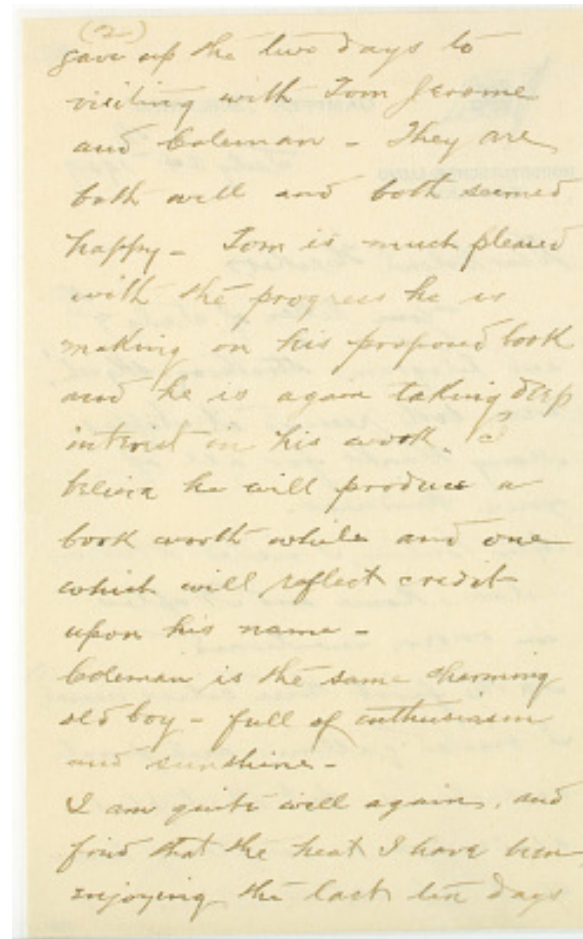 (2)
gave up the two days to
visiting with Tom Jerome
and Coleman - They are
both well and both seemed
happy - Tom is much pleased
with the progress he is
making on his proposed book
and he is again taking deep
interest in his work. I
believe he will produce a
book worth while and one
which will reflect credit
upon his name -
Coleman is the same charming
old boy - full of enthusiasm
and sunshine -
I am quite well again, and
find that the heat I have been
enjoying the last ten days